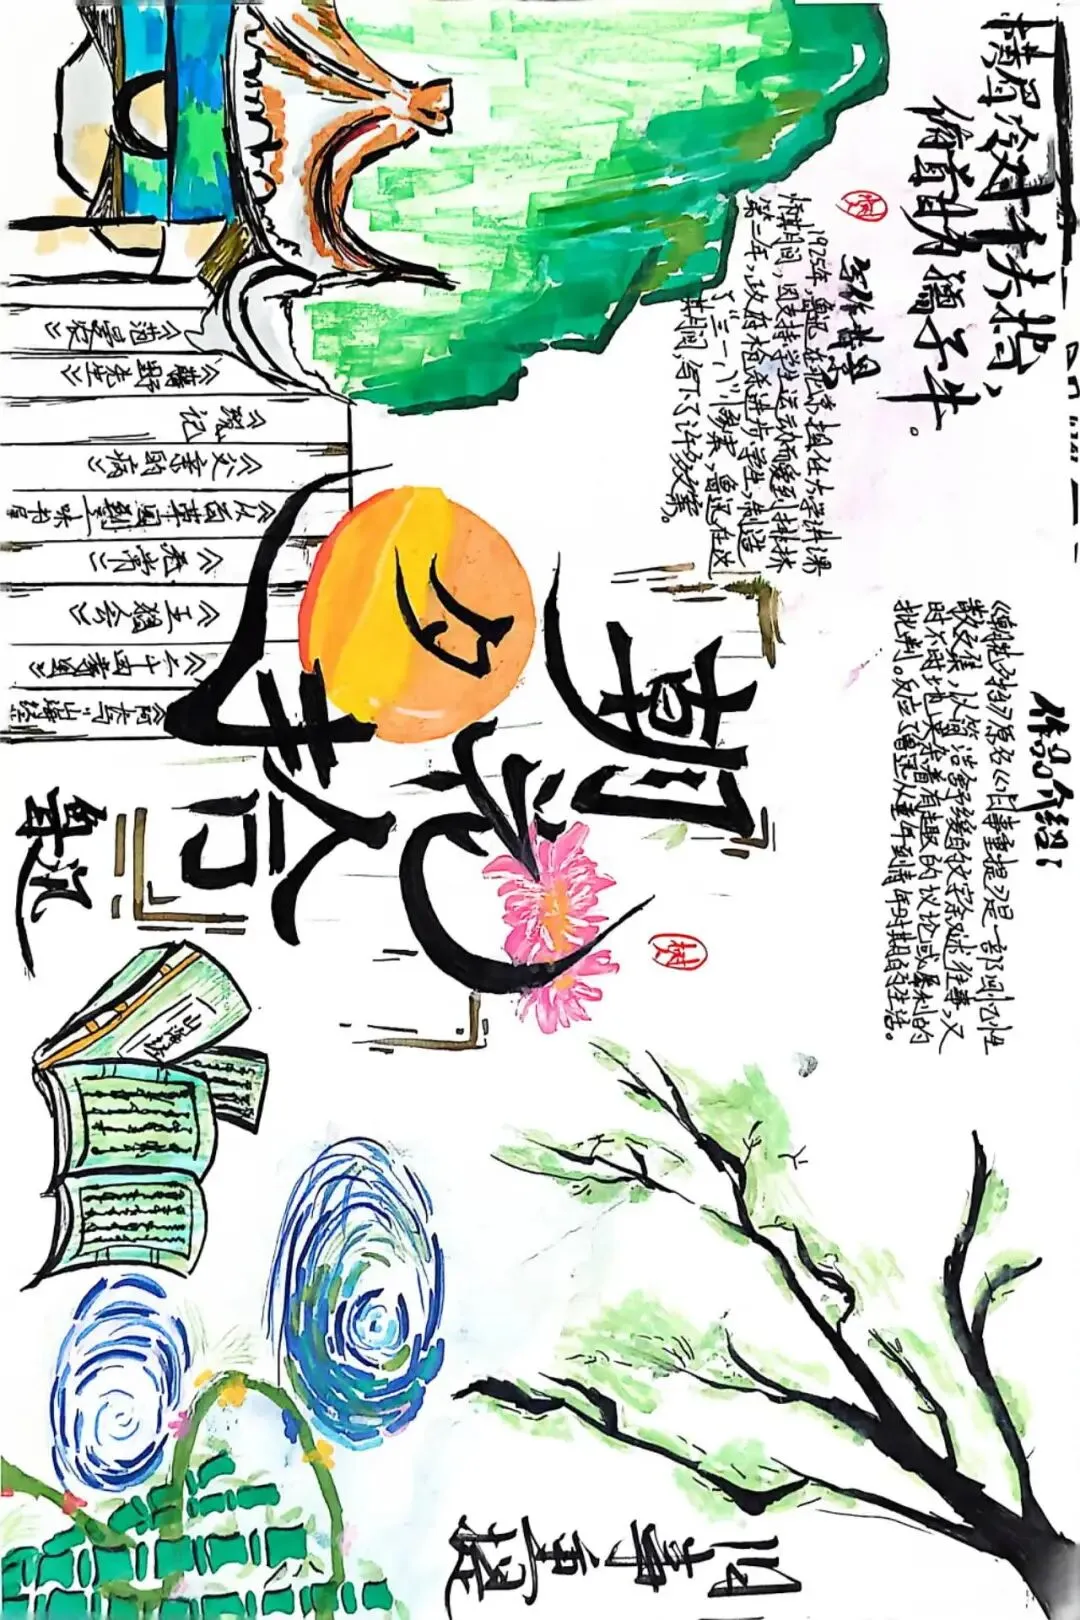 横眉冷对千夫指、
俯首甘为孺子牛。
写作背景
1925年,鲁迅在北京,担任大学讲课
期间,因支持学生运动而受到排挤
第二年,政府枪杀进步学生,制造
了“三一八”惨案,鲁迅在这
其间,写下了许多文案。
作品介绍:
《朝花夕拾》原名《旧事重提》是一部回忆性
散文集,以简洁舒缓的文字叙述往事,又
时不时地夹杂着有趣的议论或犀利的
批判。反应了鲁迅从童年到青年时期的生活。
朝花夕拾
鲁迅
《范爱农》
《藤野先生》
《琐记
《父亲的病》
《从百草园到三味书屋
《无常》
《五猖会》
《二十四孝图》
《阿长与山海经
山海经
旧事重提